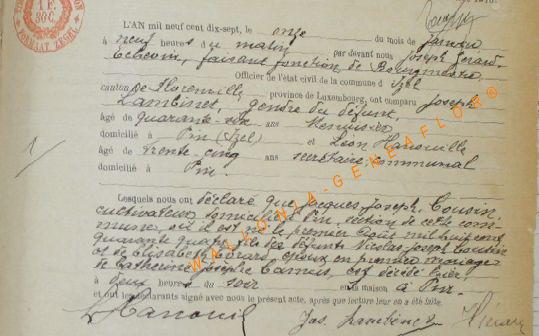 1 F.
30 C.
FORMAAT ZEGEL
L'AN mil neuf cent dix-sept, le onze du mois de janvier
à neuf heures du matin par devant nous Joseph Gérard
Echevin, faisant fonction de Bourgmestre
Officier de l'état civil de la commune d'Izel
canton de Florenville province de Luxembourg, ont comparu Joseph
Lambinet, gendre du défunt,
âgé de quarante-six ans Menuisier
domicilié à Pin (Izel) et Léon Hanouille
âgé de trente-cinq ans secrétaire communal
domicilié à Pin.
1/
Lesquels nous ont déclaré que Jacques Joseph Cousin,
cultivateur domicilié à Pin, section de cette com-
mune, où il est né le premier août mil huit cent
quarante quatre, fils des défunts Nicolas Joseph Cousin
et de Elisabeth Evrard, époux en premier mariage
de Catherine Josèphe Camus, est décédé hier,
à deux heures du soir en la maison à Pin.
et ont les déclarants signé avec nous le présent acte, après que lecture leur en a été faite.
L Hanouil Jos. Lambinet Gérard
WALLONIA-GENEAFLOR®